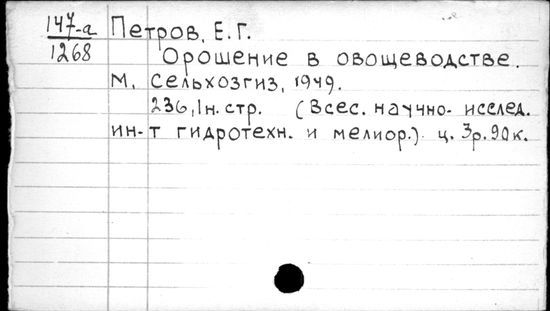 147-а Петров, Е.Г.
1268 Орошение в овощеводстве.
М, Сельхозгиз, 1949.
236, 1н. стр. (Всес. научно- исслед.
ин-т гидротехн. и мелиор.) ц. 3р. 90к.